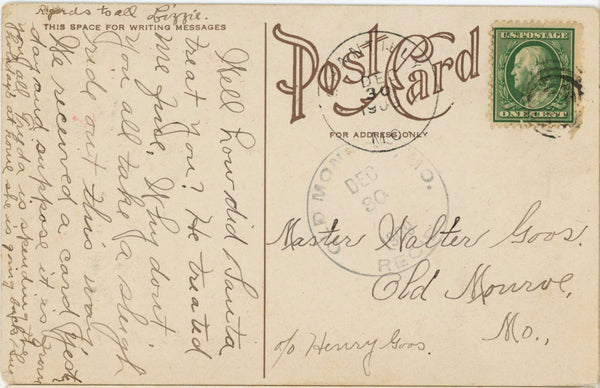 Regards to all Lizzie.
THIS SPACE FOR WRITING MESSAGES
Well how did Santa
treat you? He treated
me fine. Why don't
you all take a sleigh
ride out this way.
We received a card yest
day and suppose it is from
you all. Lyda is spending the
Holidays at home she is going back Sun
Post Card
FOR ADDRESS ONLY
DEC
30
190
MO.
OLD MONROE, MO.
DEC
30
REC'D
U.S. POSTAGE
ONE CENT
Master Walter Goos.
Old Monroe,
Mo.,
c/o Henry Goos.